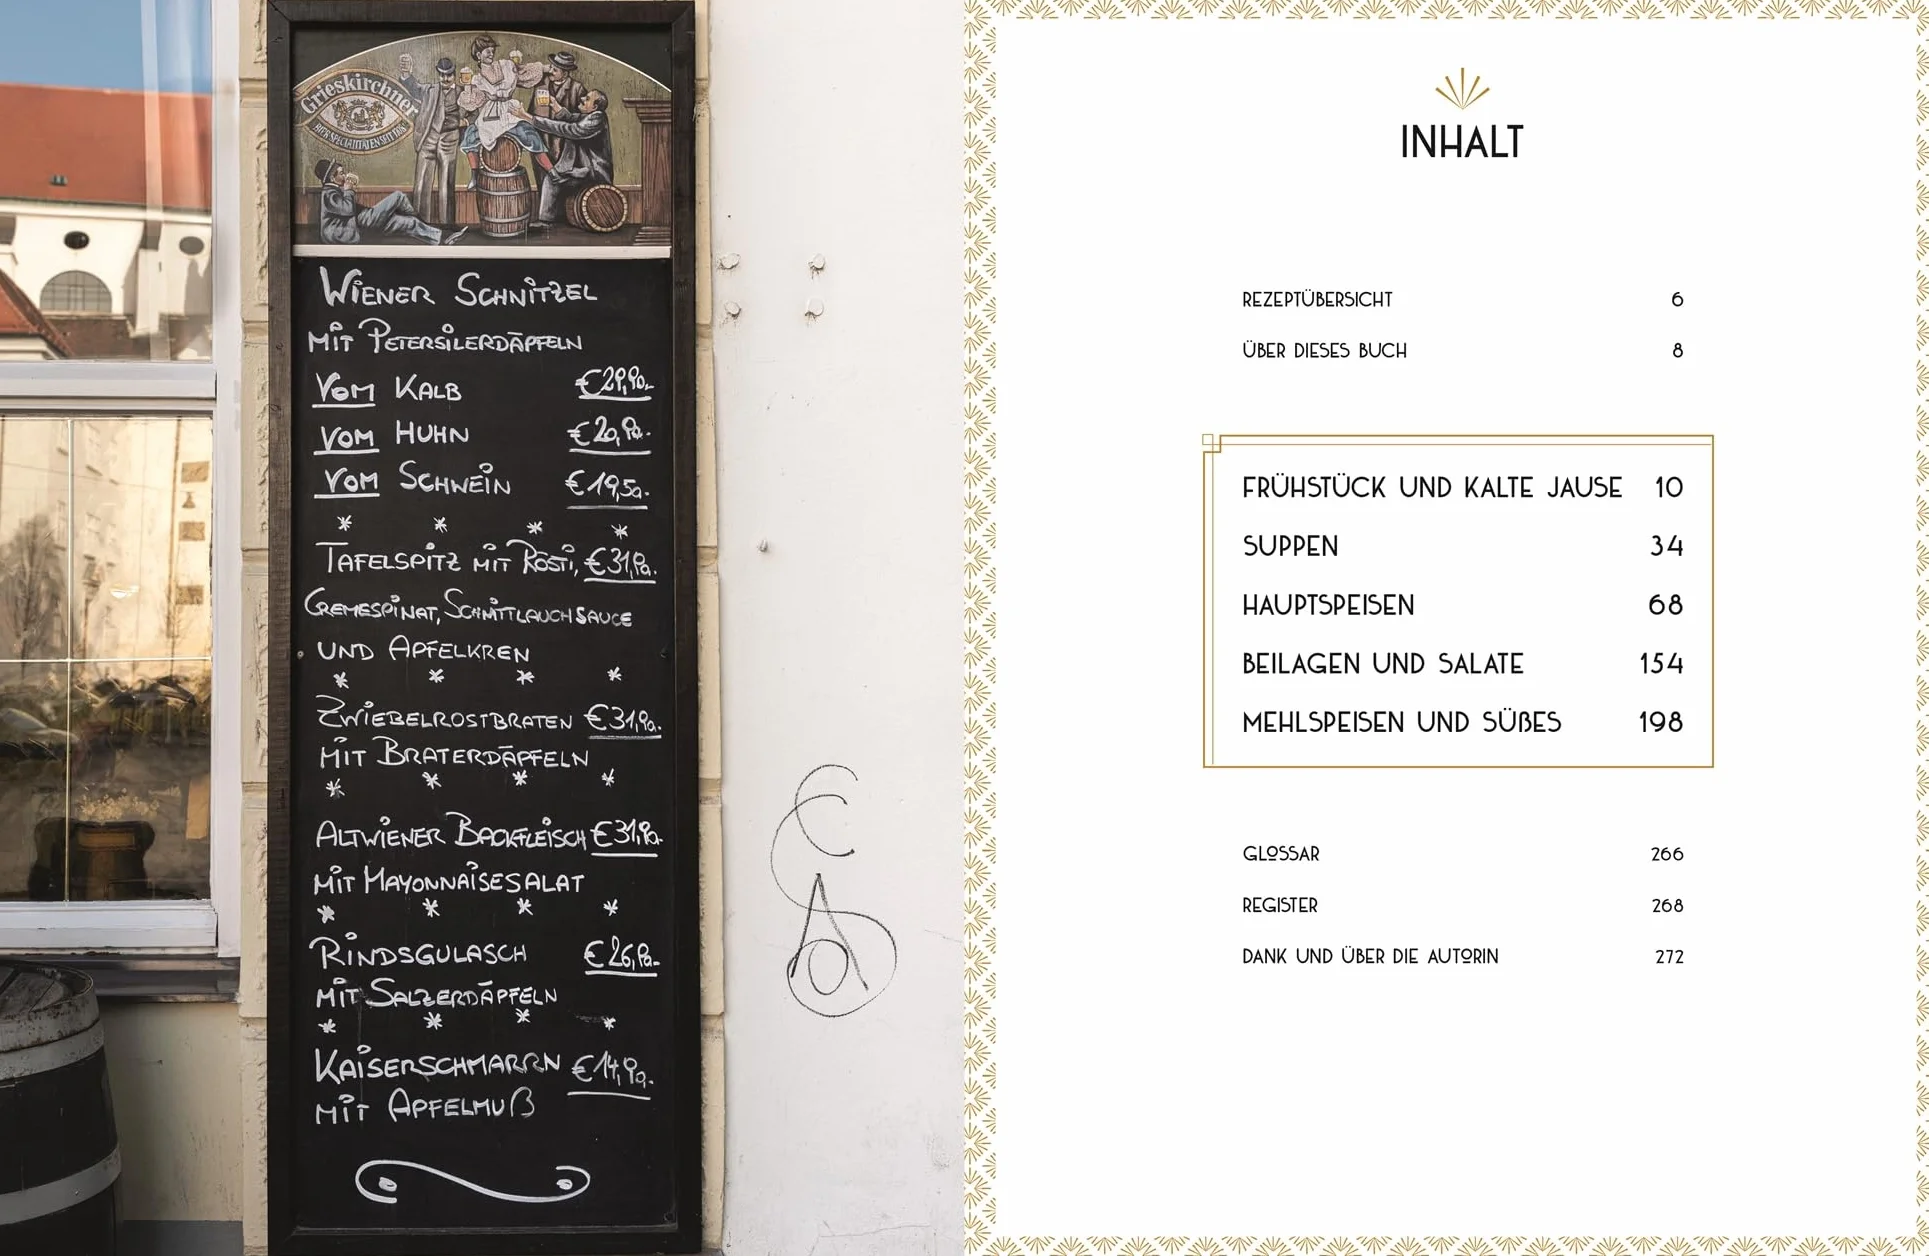 Grieskirchner
BIERSPECIALITÄTEN SEIT 1708
WIENER SCHNITZEL
MIT PETERSILERDÄPFELN
VOM KALB €29,90.-
VOM HUHN €20,90.-
VOM SCHWEIN €19,50.-
* * * *
TAFELSPITZ MIT RÖSTI, €31,90.-
CREMESPINAT, SCHNITTLAUCHSAUCE
UND APFELKREN
* * * *
ZWIEBELROSTBRATEN €31,90.-
MIT BRATERDÄPFELN
* * * *
ALTWIENER BACKFLEISCH €31,90.-
MIT MAYONNAISESALAT
* * * *
RINDSGULASCH €26,90.-
MIT SALZERDÄPFELN
* * * *
KAISERSCHMARRN €14,90.-
MIT APFELMUß
INHALT
REZEPTÜBERSICHT 6
ÜBER DIESES BUCH 8
FRÜHSTÜCK UND KALTE JAUSE 10
SUPPEN 34
HAUPTSPEISEN 68
BEILAGEN UND SALATE 154
MEHLSPEISEN UND SÜßES 198
GLOSSAR 266
REGISTER 268
DANK UND ÜBER DIE AUTORIN 272